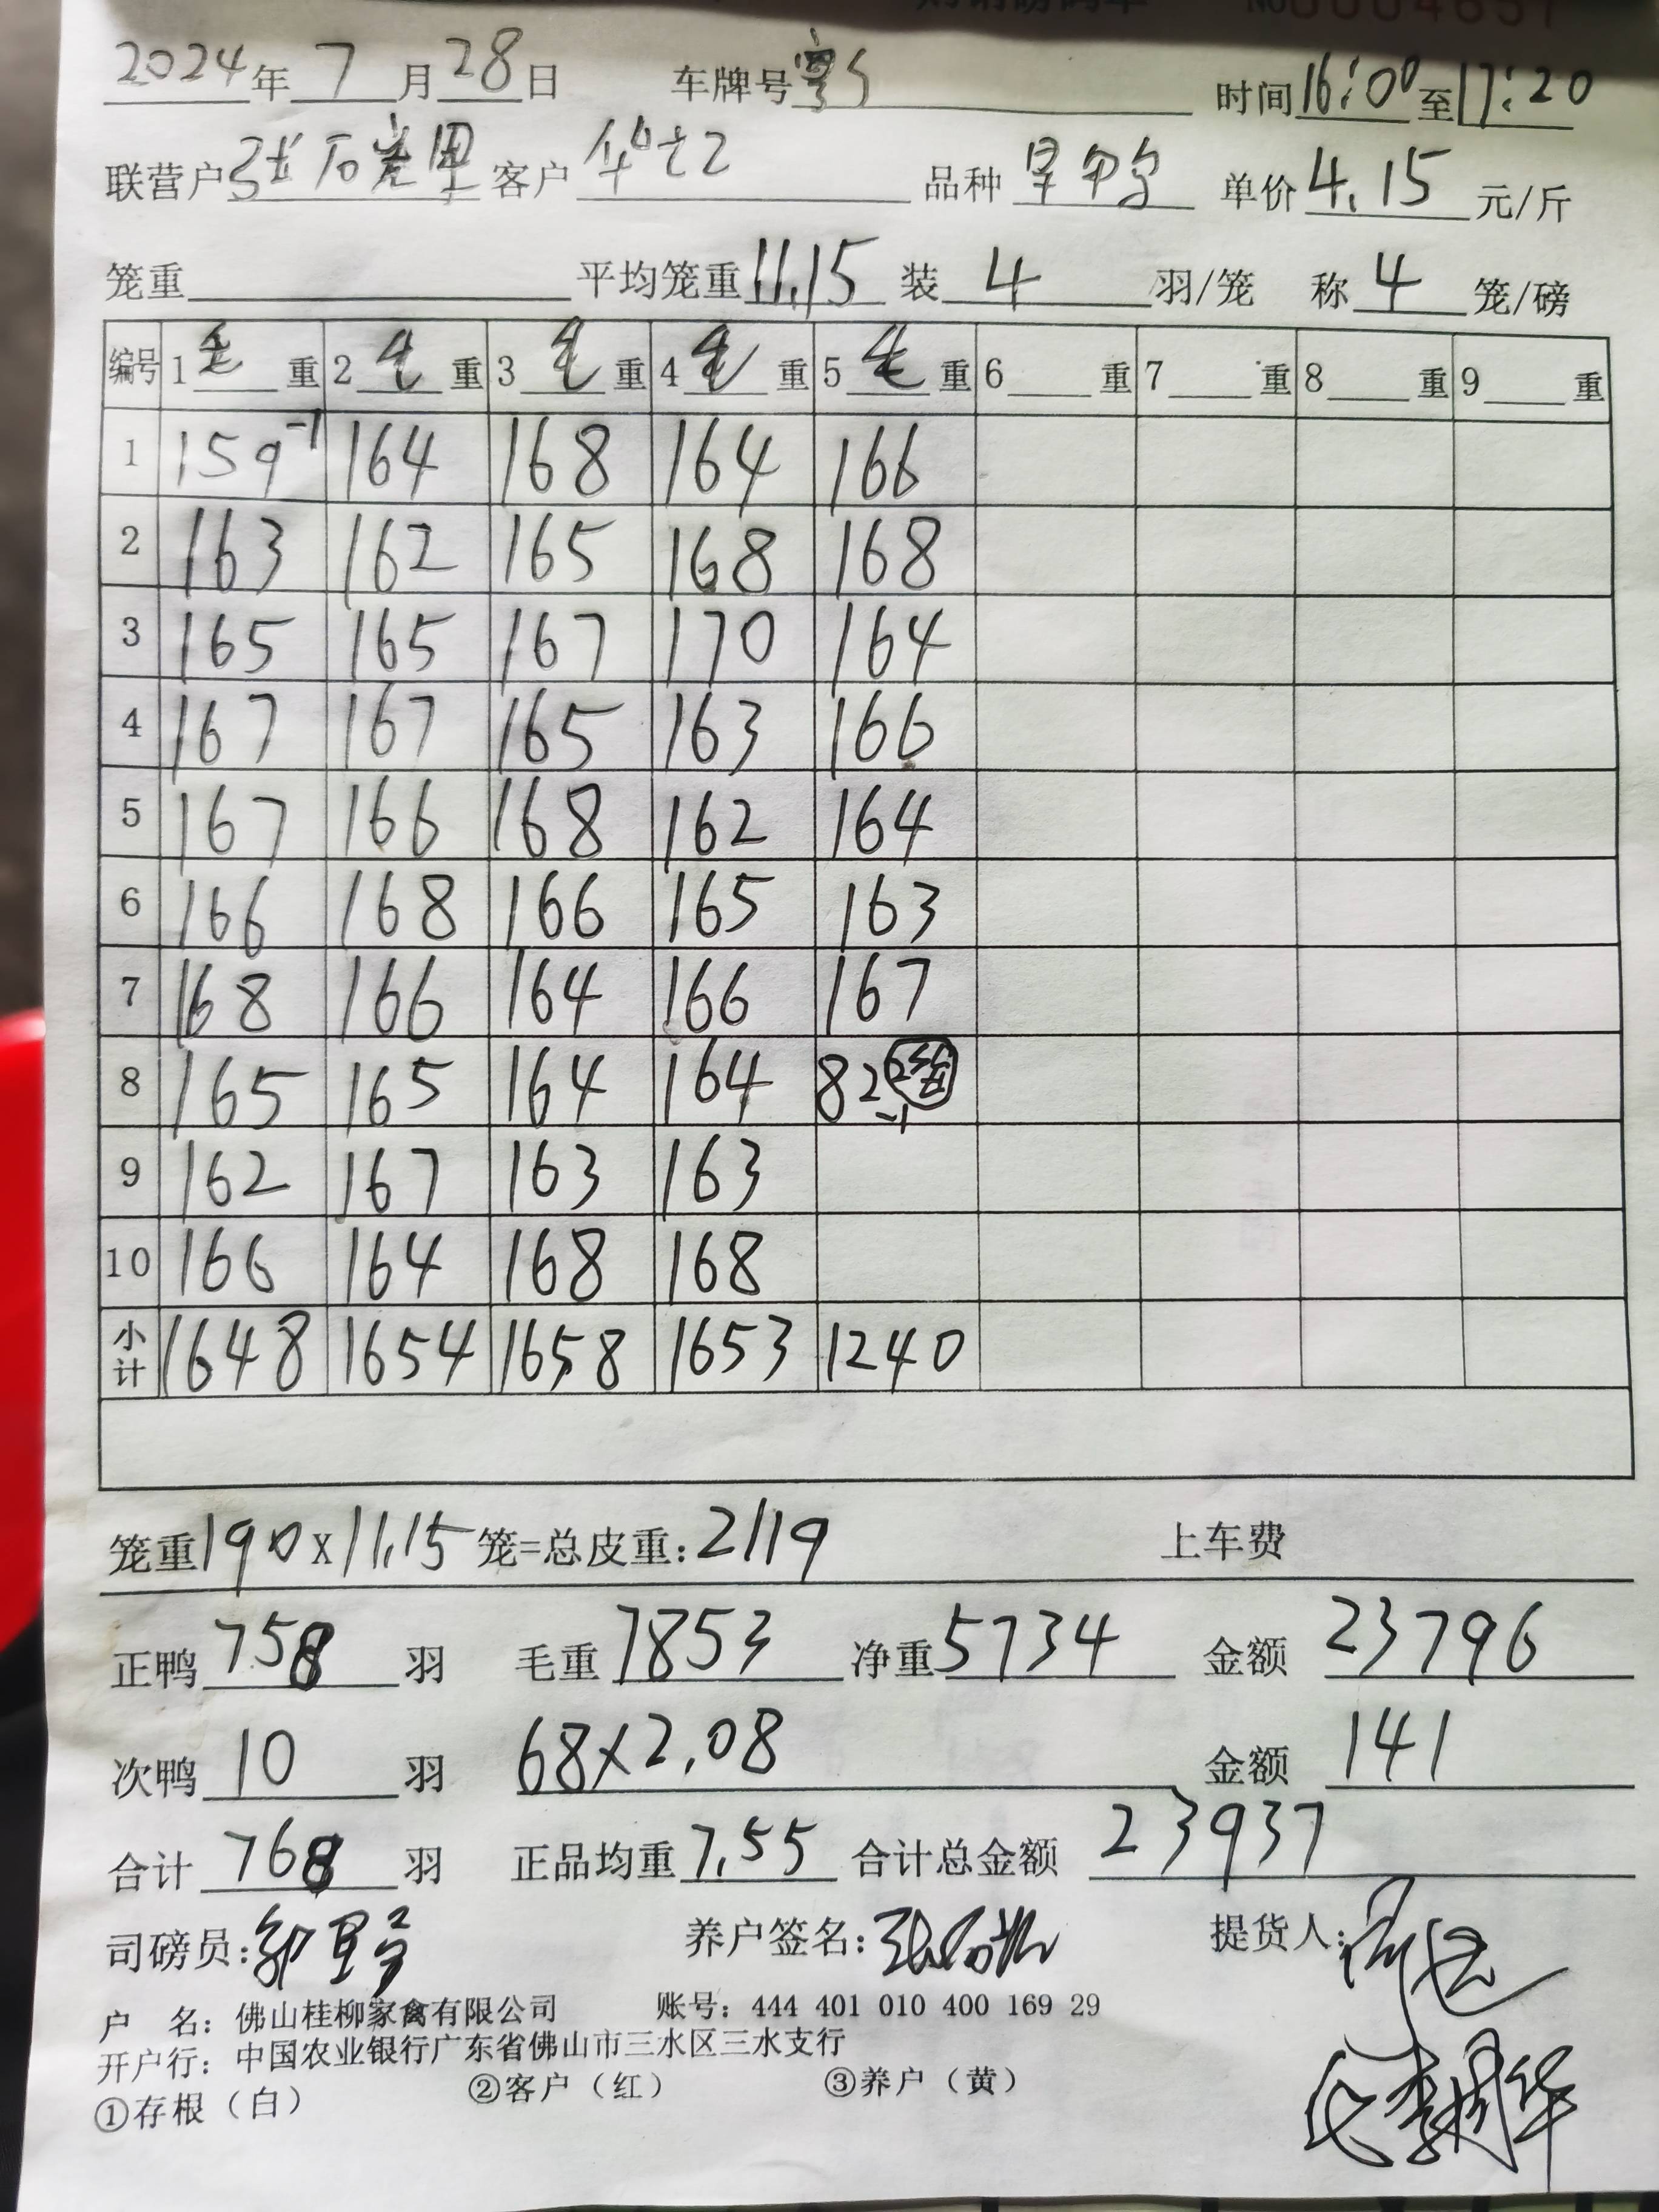 No 0004657
2024年 7 月 28 日 车牌号 粤 时间 16:00 至 17:20
联营户 张石 客户 华 品种 鸭 单价 4.15 元/斤
笼重 平均笼重 11.15 装 4 羽/笼 称 4 笼/磅
编号 1 毛 重 2 毛 重 3 毛 重 4 毛 重 5 毛 重 6 重 7 重 8 重 9 重
1 159-1 164 168 164 166
2 163 162 165 168 168
3 165 165 167 170 164
4 167 167 165 163 166
5 167 166 168 162 164
6 166 168 166 165 163
7 168 166 164 166 167
8 165 165 164 164 82 2笼 -1
9 162 167 163 163
10 166 164 168 168
小计 1648 1654 1658 1653 1240
笼重 190 x 11.15 笼=总皮重: 2119 上车费
正鸭 758 羽 毛重 7853 净重 5734 金额 23796
次鸭 10 羽 68×2.08 金额 141
合计 768 羽 正品均重 7.55 合计总金额 23937
司磅员: 养户签名: 提货人:
户 名: 佛山桂柳家禽有限公司 账号: 444 401 010 400 169 29
开户行: 中国农业银行广东省佛山市三水区三水支行
①存根(白) ②客户(红) ③养户(黄)